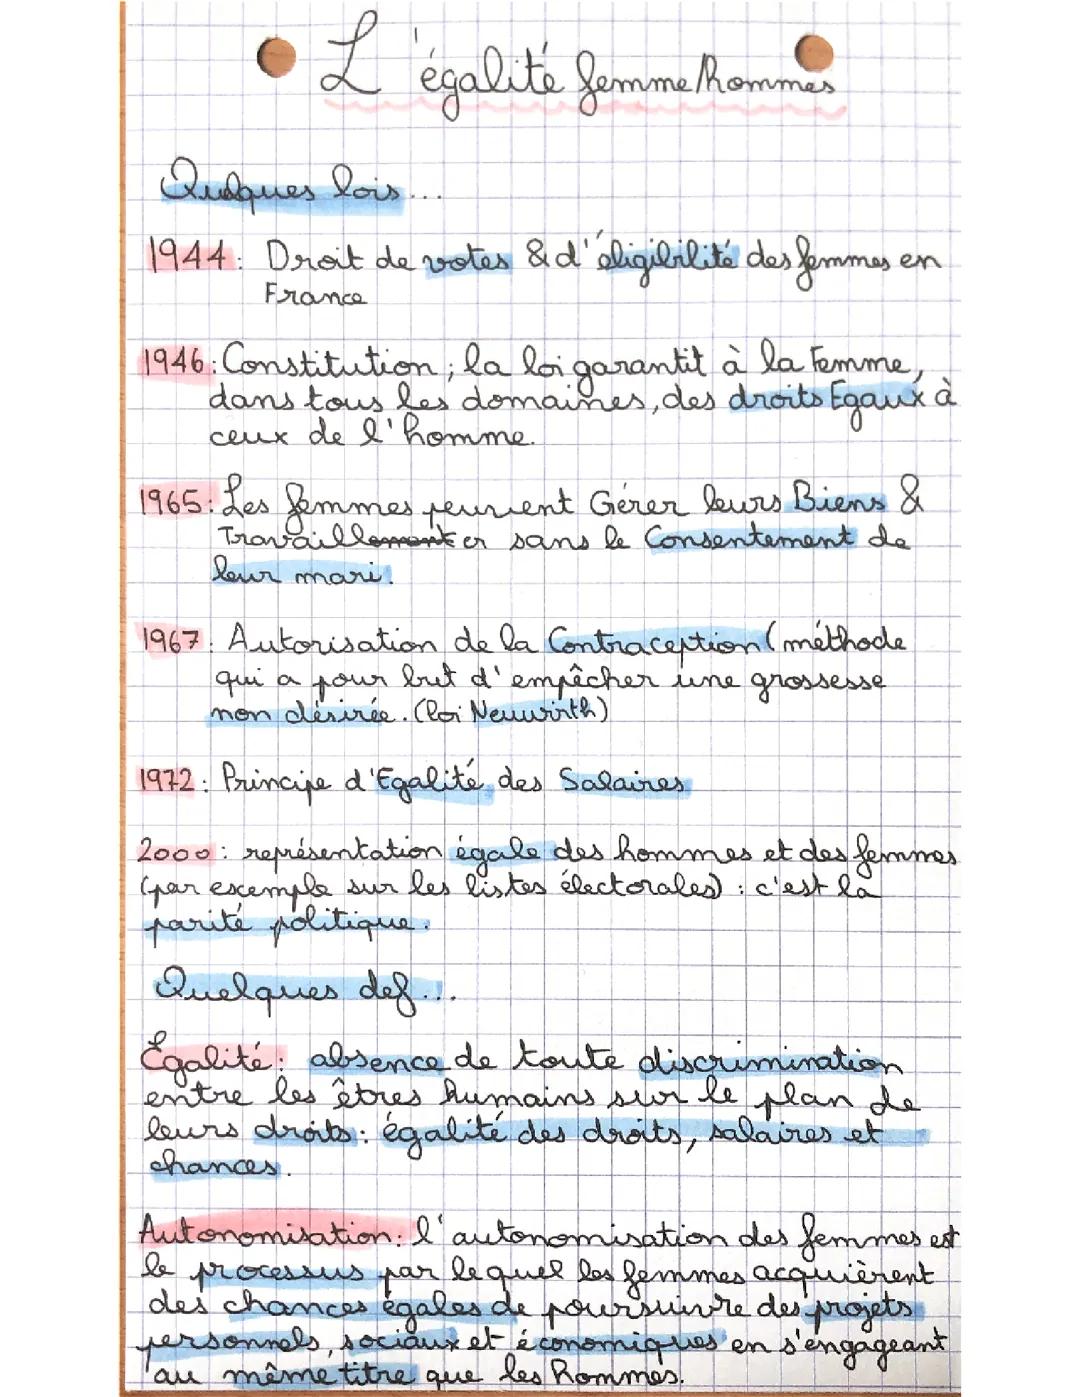 L'égalité femme/hommes
Quelques lois...
1944: Droit de votes & d'éligibilité des femmes en
France
1946: Constitution; la loi garantit à la Femme,
dans tous les domaines, des droits Egaux à
ceux de l'homme.
1965: Les femmes peuvent Gérer leurs Biens &
Travailler sans le Consentement de
leur mari.
1967: Autorisation de la Contraception (méthode
qui a pour but d'empêcher une grossesse
non désirée. (loi Neuwirth)
1972: Principe d'Egalité des Salaires
2000: représentation égale des hommes et des femmes
(par exemple sur les listes électorales): c'est la
parité politique.
Quelques def...
Égalité: absence de toute discrimination
entre les êtres humains sur le plan de
leurs droits: égalité des droits, salaires et
chances.
Autonomisation: l'autonomisation des femmes est
le processus par lequel les femmes acquièrent
des chances égales de poursuivre des projets
personnels, sociaux et économiques en s'engageant
au même titre que les hommes.